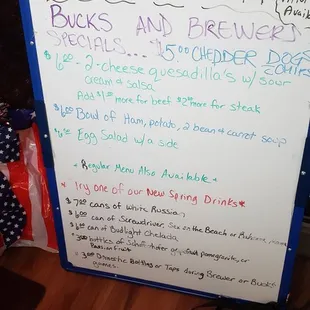 Avail
BUCKS AND BREWERS
SPECIALS... $5.00 CHEDDER DOG
$6.00 - 2-cheese quesadilla's w/ sour
cream & salsa
Add $1 more for beef $2 more for steak
$6.00 Bowl of Ham, potato, 2 bean & carrot soup
Egg Salad w/ a side
* Regular Menu Also Available *
* Try one of our New Spring Drinks *
$7.00 cans of White Russian
$6.00 can of Screwdriver, Sex on the Beach or
can of Budlight Chelada
bottles of pomegranate, or
Passionfruit
Domestic Bottles or Taps during Brewer or Bucks
games